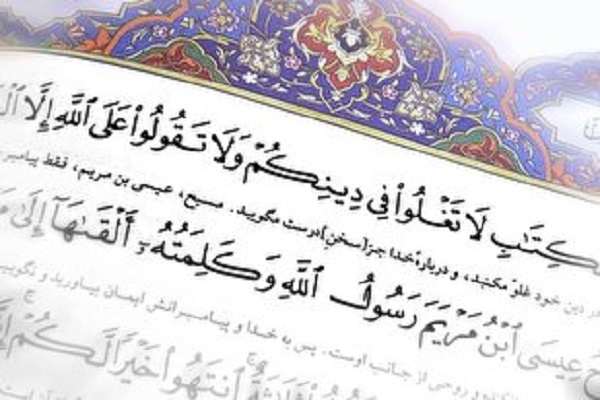 ـكِتَٰبِ لَا تَغْلُوا۟ فِى دِينِكُمْ وَلَا تَقُولُوا۟ عَلَى ٱللَّهِ إِلَّا ٱلْـ
در دین خود غلوّ مکنید، و دربارهٔ خدا جز [سخن] درست مگویید. مسیح، عیسی بن مریم، فقط پیامبر
عِيسَى ٱبْنُ مَرْيَمَ رَسُولُ ٱللَّهِ وَكَلِمَتُهُۥٓ أَلْقَىٰهَآ إِلَىٰ
و روحی از جانب اوست. پس به خدا و پیامبرانش ایمان بیاورید و نگویید
ثَلَٰثَةٌ ٱنتَهُوا۟ خَيْرًا لَّكُمْ